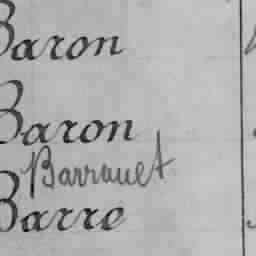 Baron
Baron
Barrauet
Barre